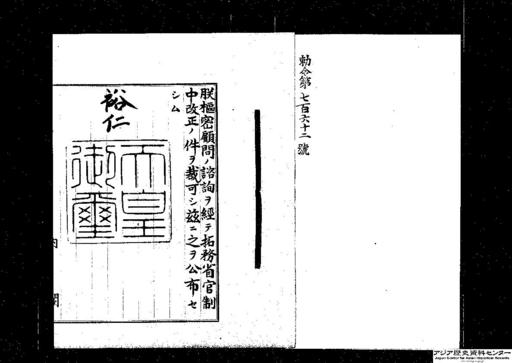 勅令第七百六十二號
朕樞密顧問ノ諮詢ヲ經テ拓務省官制
中改正ノ件ヲ裁可シ玆ニ之ヲ公布セ
シム
裕仁
天皇
御璽
アジア歴史資料センター
Japan Center for Asian Historical Records